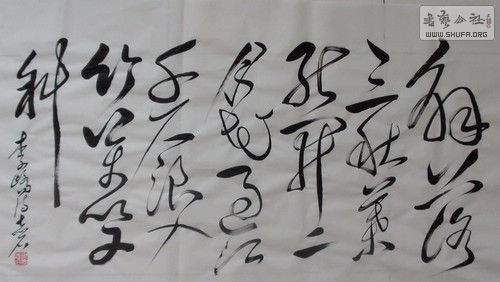 書藝公社
WWW.SHUFA.ORG
解落
三秋葉
能開二
月花過江
千尺浪入
竹万竿
斜
李嶠詩